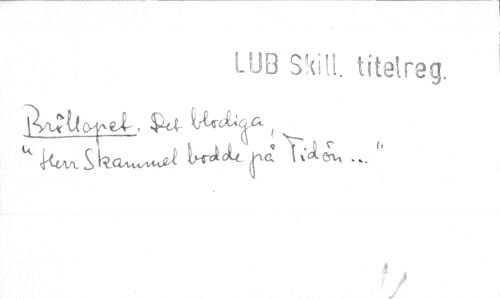 LUB Skill. titelreg.
Bröllopet. Det blodiga,
"Herr Skammel bodde på Tidön ..."